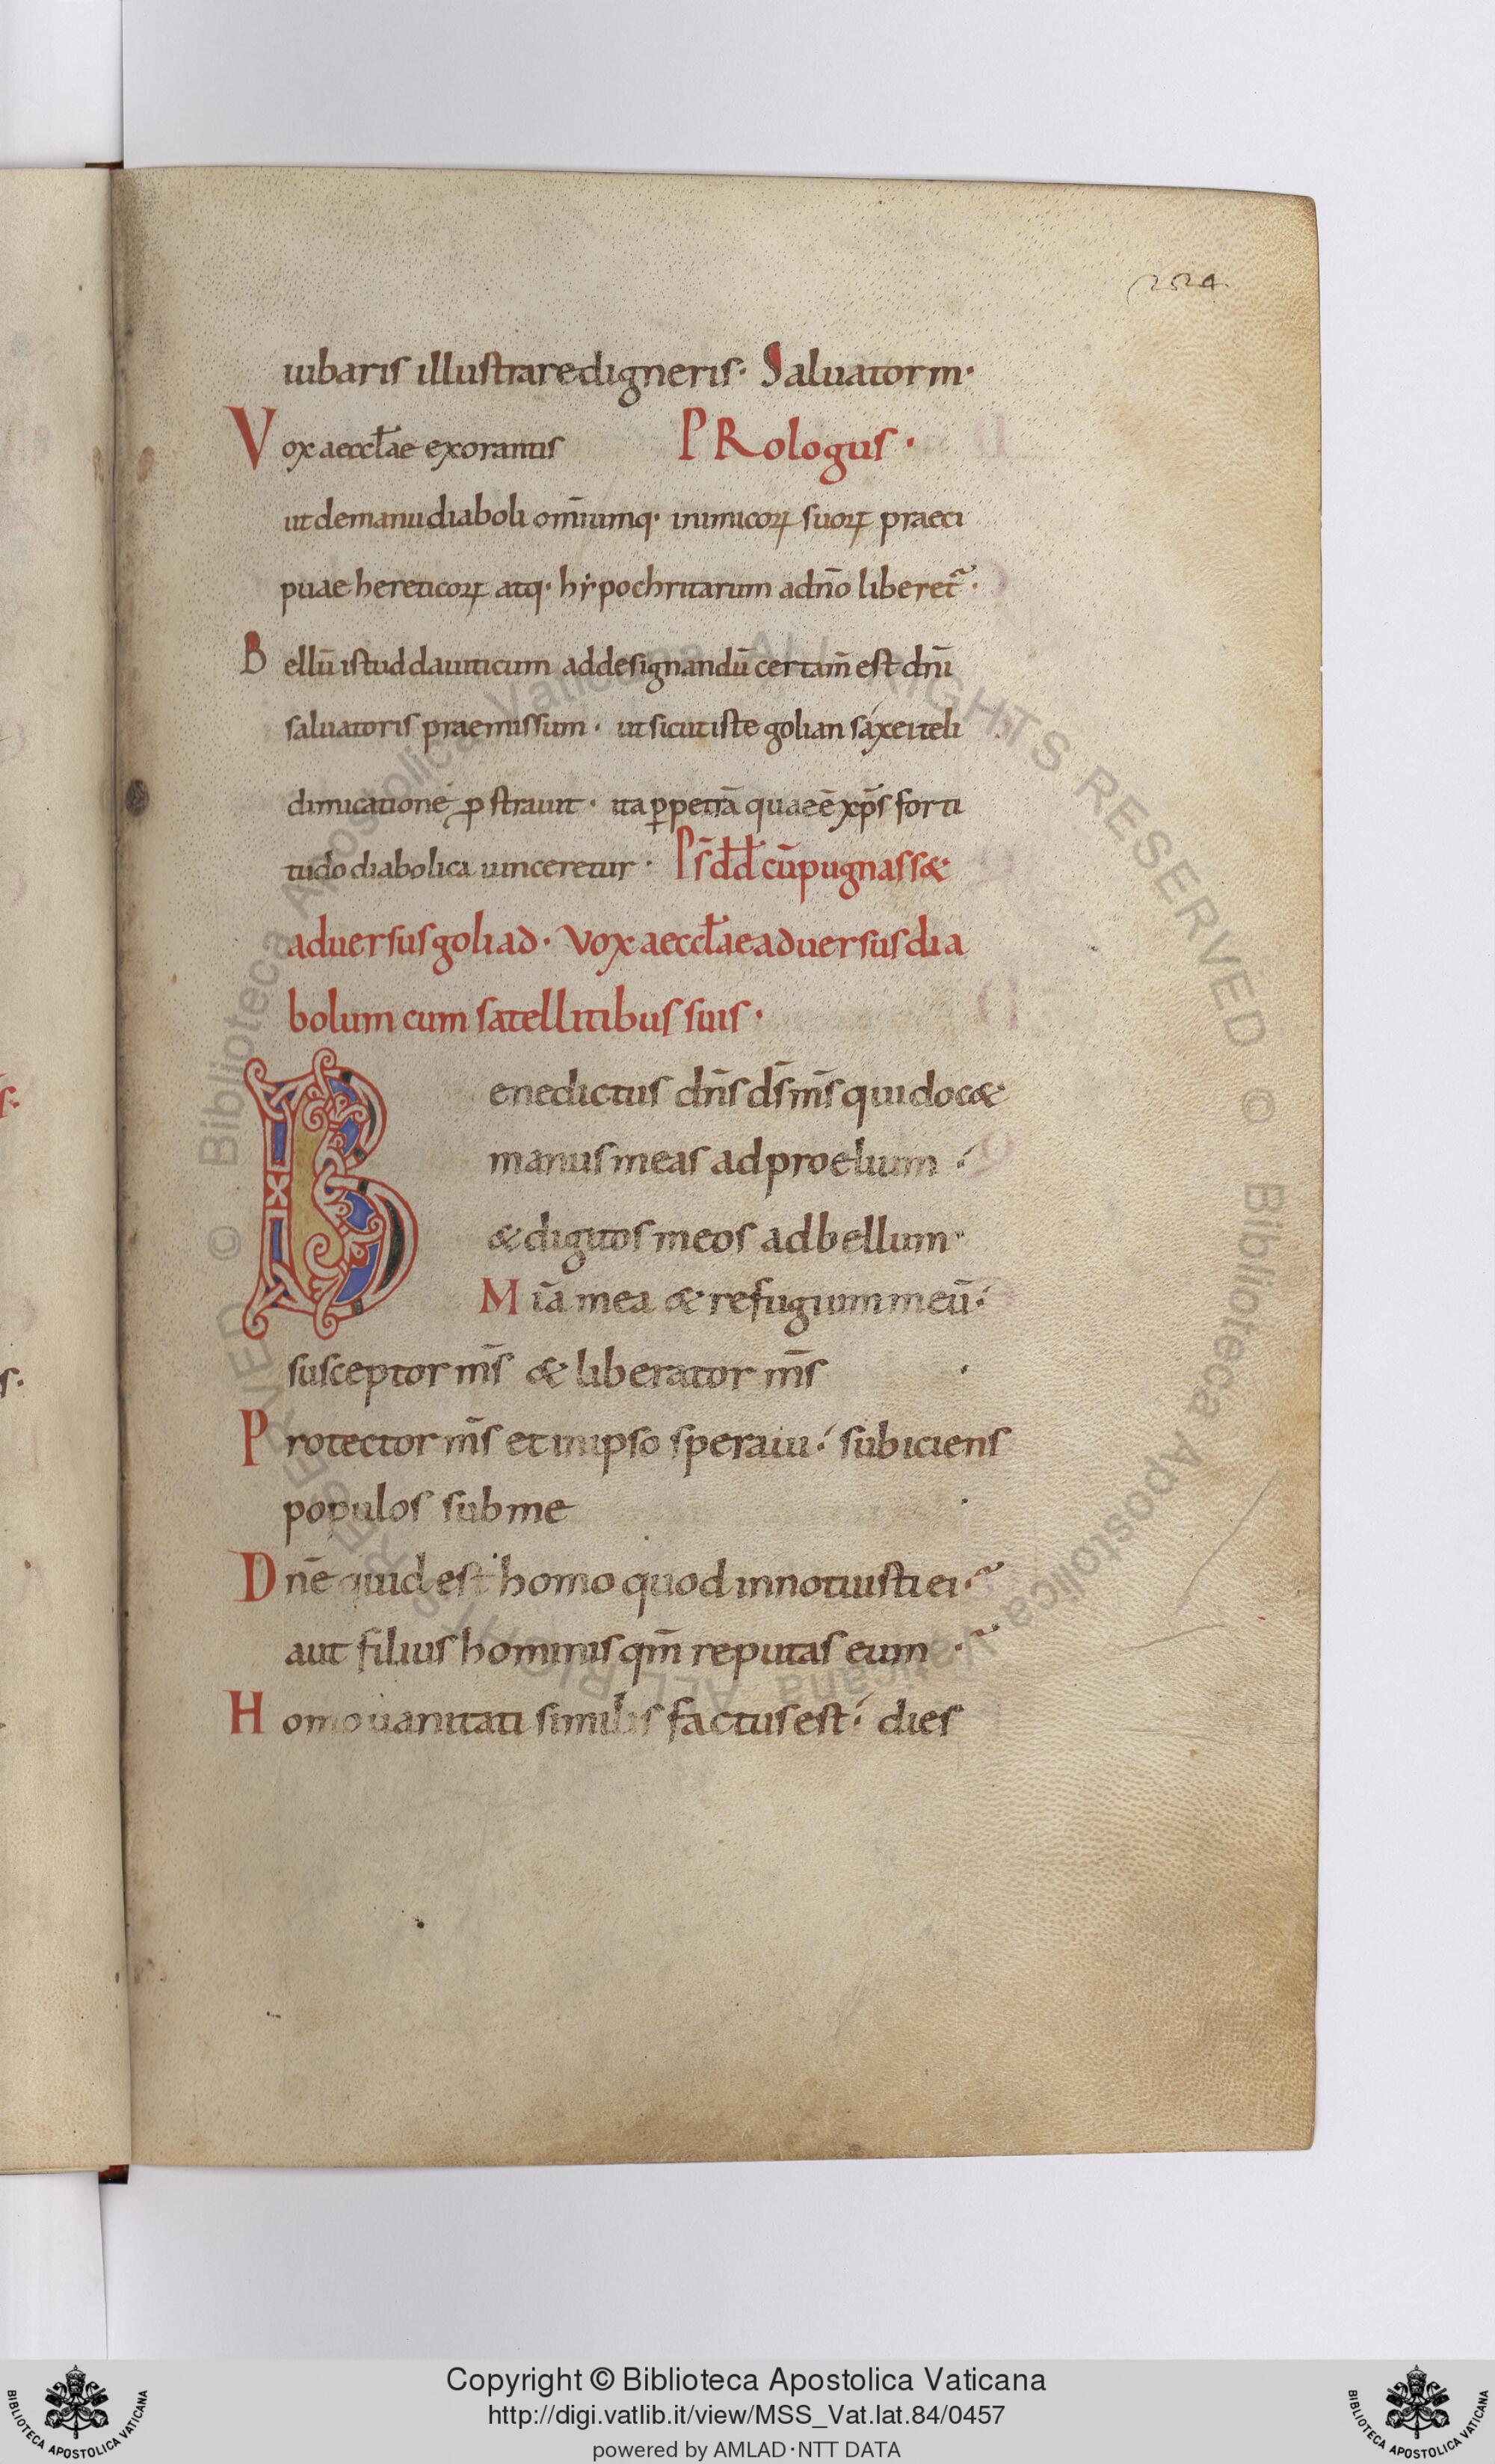 224
iubaris illustraredigneris· Saluator m·
Vox aeccłae exorantis PRologus·
ut demanu diaboli om̄iumq· inimicoꝝ suoꝝ praeci
puae hereticoꝝ atq· hẏpochritarum adn̄o liberet᷑·
Bellū istud dauiticum addesignandū certam̄ est dn̄i
saluatoris praemissum· ut sicut iste golian sáxei teli
dimicatione ꝓstrauit· ita ꝑpetrā quae ē xp̄s forti
tudo diabolica uinceretur· Ps̄ dd̄ cū pugnass&
aduersus goliad· Vox aeccłae aduersus dia
bolum cum satellitibus suis·
Benedictus dn̄s ds̄ ms̄ qui doc&
manus meas ad proelium
& digitos meos ad bellum
Mīa mea & refugium meū
susceptor ms̄ & liberator ms̄ ·
Protector ms̄ et in ipso speraui subiciens
populos sub me ·
Dnē quid est homo quod innotuisti ei
aut filius hominis qm̄ reputas eum
Homo uanitati similis factus est dies
© Biblioteca Apostolica Vaticana ALL RIGHTS RESERVED
© Biblioteca Apostolica Vaticana ALL RIGHTS RESERVED
Copyright © Biblioteca Apostolica Vaticana
http://digi.vatlib.it/view/MSS_Vat.lat.84/0457
powered by AMLAD·NTT DATA
BIBLIOTECA APOSTOLICA VATICANA
BIBLIOTECA APOSTOLICA VATICANA